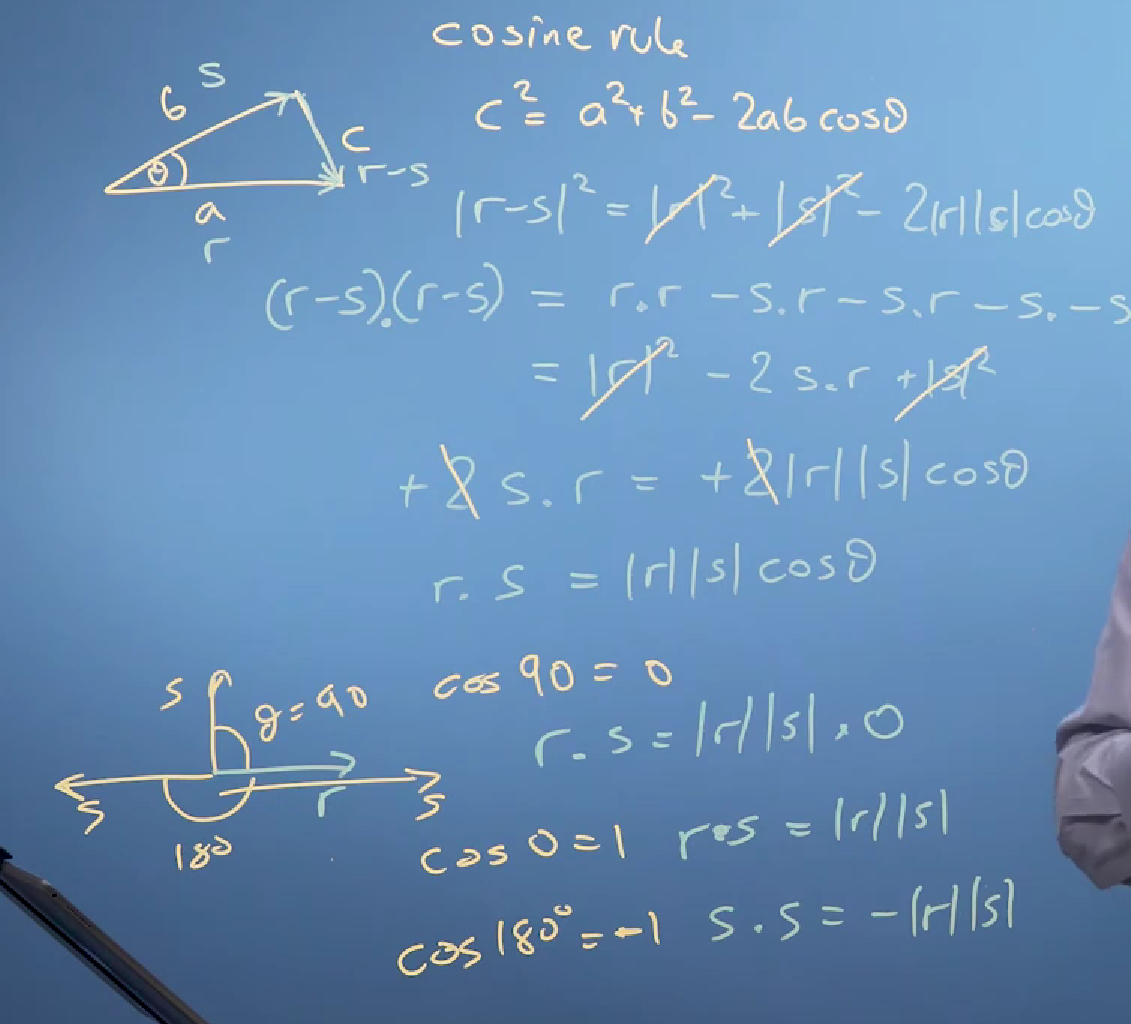 cosine rule
s
b
c² = a² + b² - 2ab cosθ
θ
c
r-s
a
r
|r-s|² = |r|² + |s|² - 2|r||s|cosθ
(r-s).(r-s) = r.r - s.r - s.r - s.-s
= |r|² - 2 s.r + |s|²
+2 s.r = +2|r||s| cosθ
r.s = |r||s| cosθ
s
θ=90
cos 90 = 0
r.s = |r||s|.0
s
r
s
180
cos 0 = 1 r.s = |r||s|
cos 180° = -1 s.s = -|r||s|